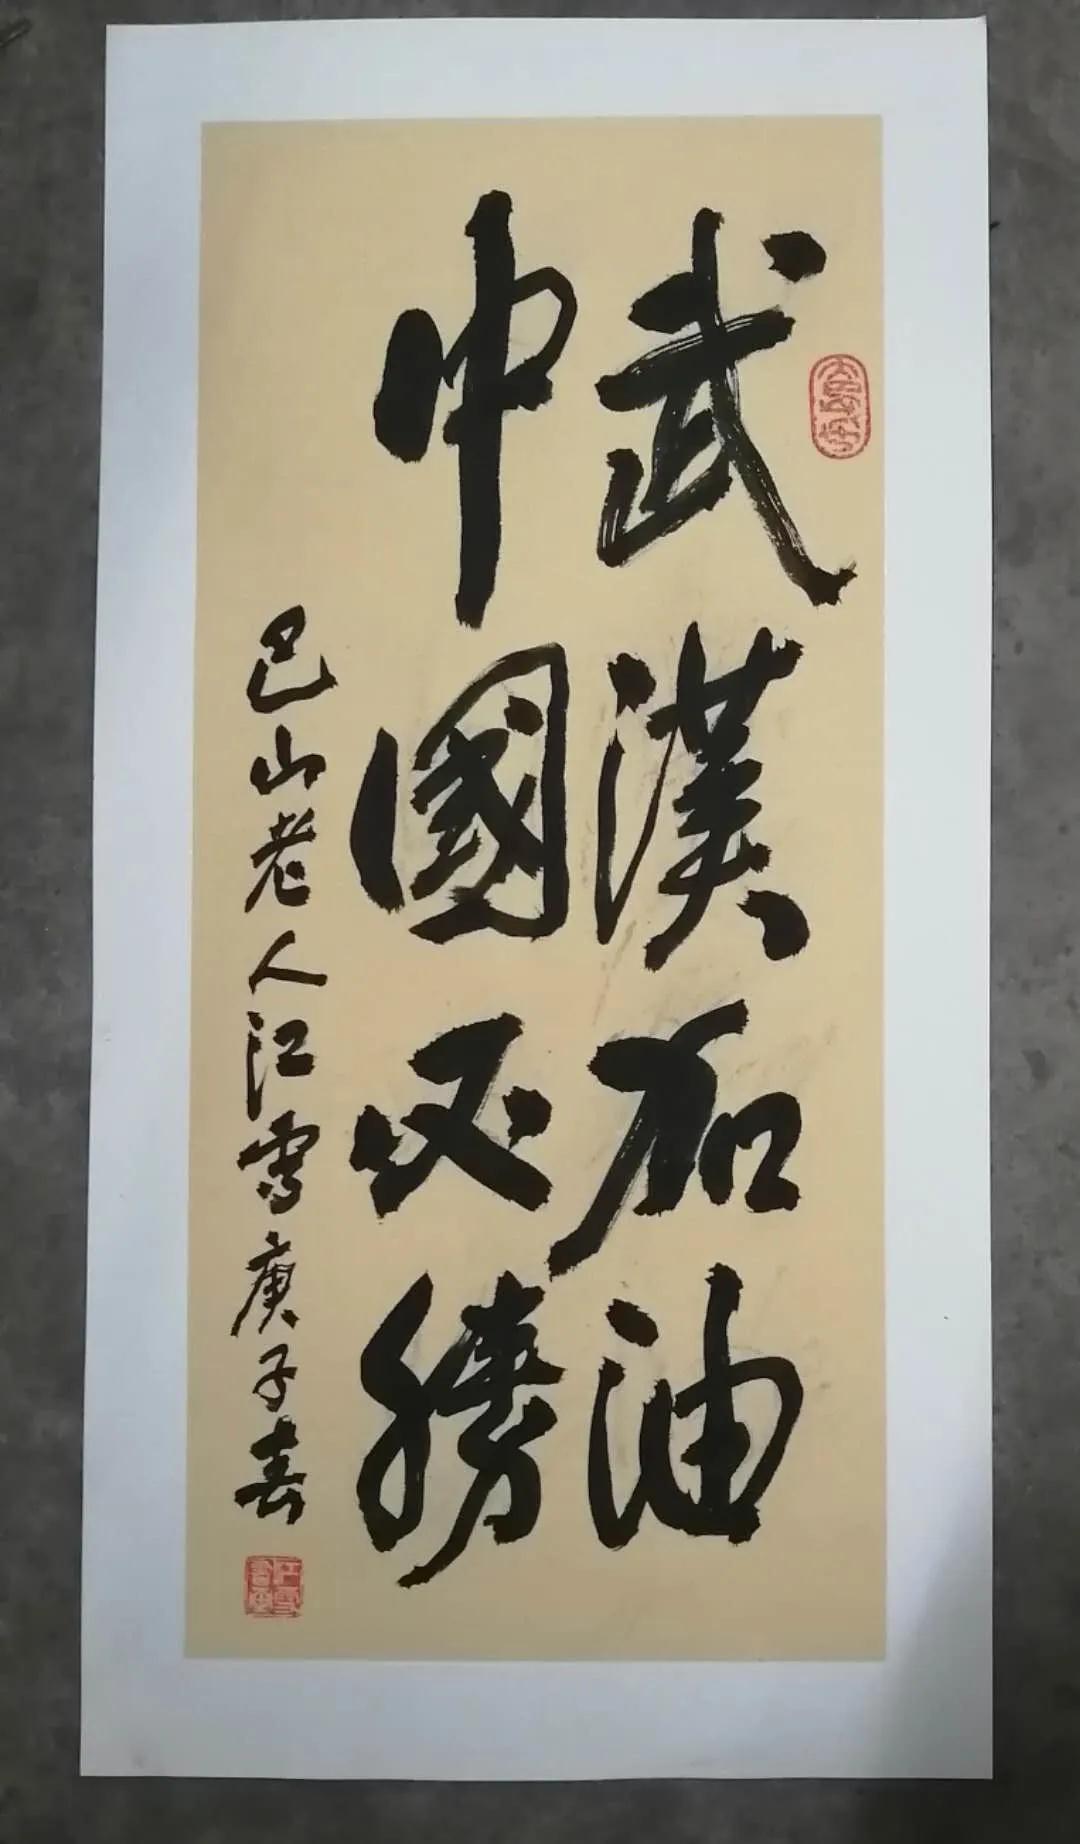 武漢加油
中國必勝
巴山老人江雪庚子春